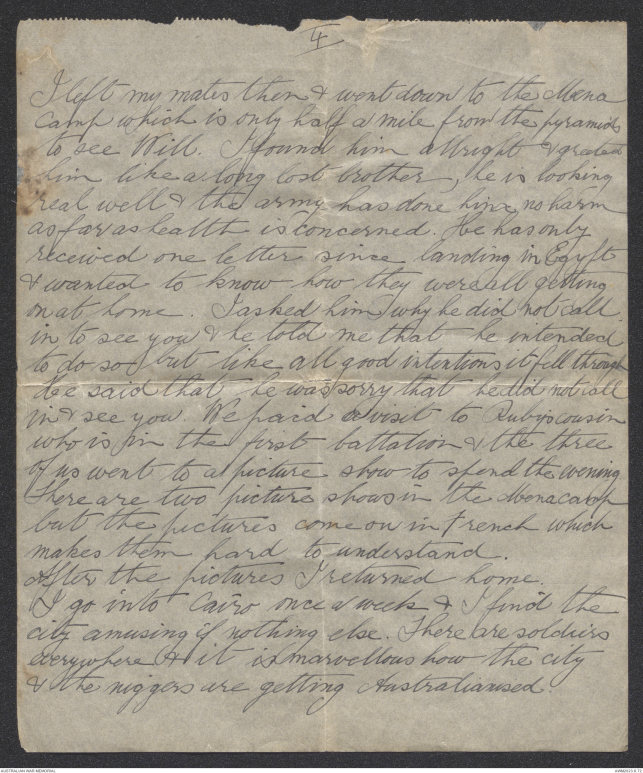 4
I left my mates then & went down to the Mena
camp which is only half a mile from the pyramids
to see Will. I found him allright & greeted
him like a long lost brother, he is looking
real well & the army has done him no harm
as far as health is concerned. He has only
received one letter since landing in Egypt
& wanted to know how they were all getting
on at home. I asked him why he did not call
in to see you & he told me that he intended
to do so but like all good intentions it fell through
He said that he was sorry that he did not call
in & see you We paid a visit to Rubys cousin
who is in the first battation & the three
of us went to a picture show to spend the evening
There are two picture shows in the Mena camp
but the pictures come on in French which
makes them hard to understand.
After the pictures I returned home.
I go into Cairo once a week & I find the
city amusing if nothing else. There are soldiers
everywhere & it is marvellous how the city
& the niggers are getting Australianised.
AUSTRALIAN WAR MEMORIAL